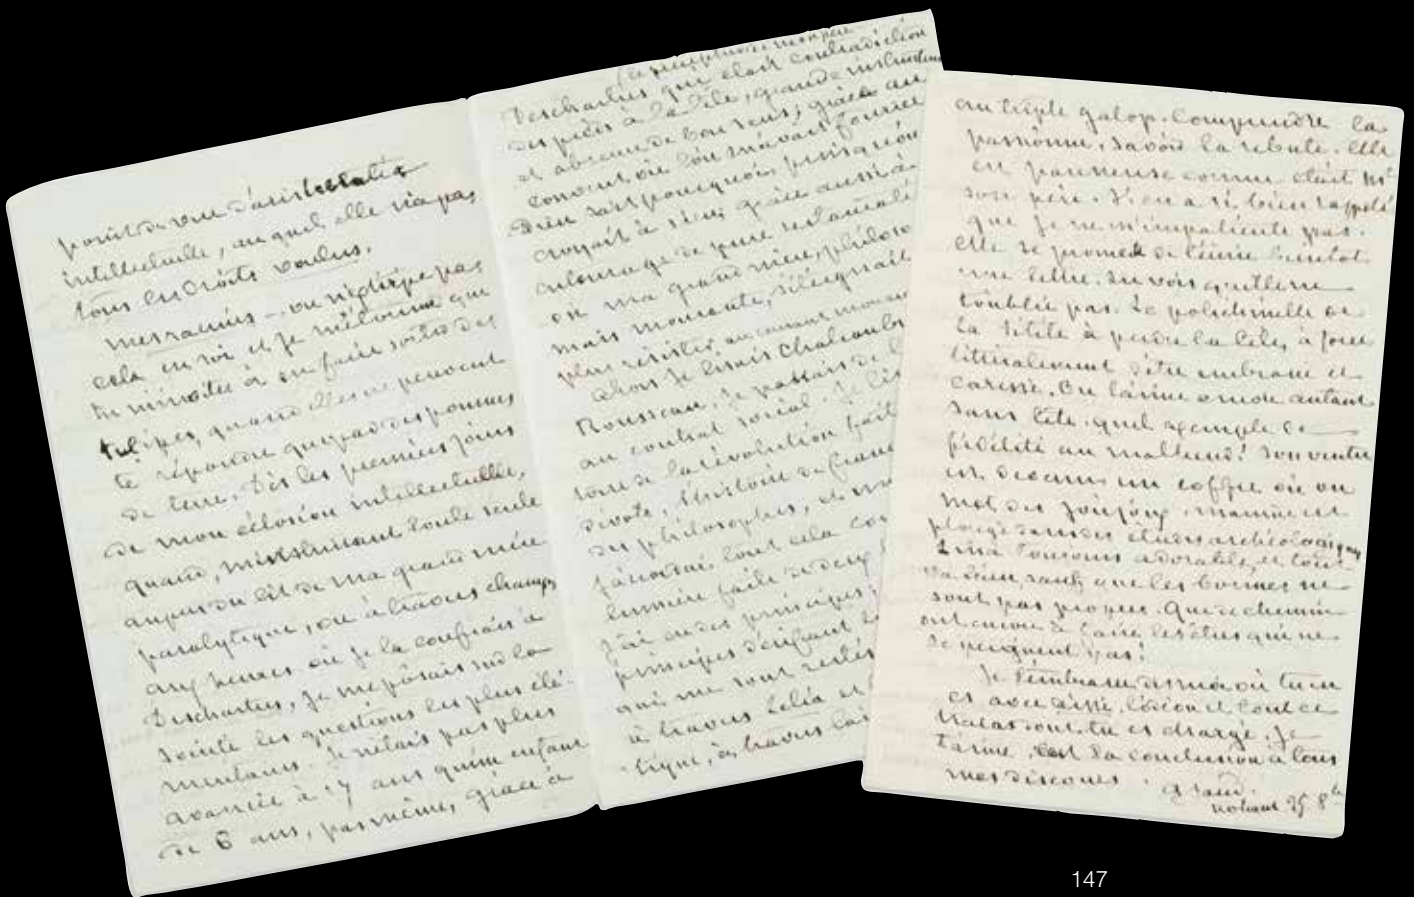 point de vue d'aristocratie
intellectuelle, auquel elle n'a pas
tous les droits voulus.
Mes racines – on n'extirpe pas
cela en soi et je m'étonne que
tu m'invites à en faire sortir des
tulipes, quand elles ne peuvent
te répondre que par des pommes
de terre. Dès les premiers jours
de mon éclosion intellectuelle,
quand, m'instruisant toute seule
auprès du lit de ma grand mère
paralytique, ou à travers champs
aux heures où je la confiais à
Deschartres, je me posais sur la
société les questions les plus élé-
mentaires. Je n'étais pas plus
avancée à 17 ans qu'un enfant
de 6 ans, pas même, grâce à
Deschartres qui était contradiction
des pieds à la tête, grande instruction
et absence de bon sens; grâce au
couvent où l'on m'avait fourrée
Dieu sait pourquoi, puisqu'on
croyait à rien; grâce aussi à
entourage de pure restaurati
où ma grand mère, philoso
mais mourante, s'éteignait
plus résister au courant monar
Alors je lisais Chateaubr
Rousseau, je passais de l'
au contrat social. Je lis
toire de la révolution fait
dévots, l'histoire de france
des philosophes, et un
j'accordai tout cela co
lumière faite de deux
j'ai eu des principes,
principes d'enfant
qui me sont restés
à travers Lélia et
au triple galop. Comprendre la
passionne, savoir la rebute. Elle
est paresseuse comme était Mr
son père. Il en a si bien rappelé
que je ne m'impatiente pas.
Elle se promet de t'écrire bientôt
une lettre. Tu vois qu'elle ne
t'oublie pas. Le polichinelle de
la Titite à perdu la tête, à force
littéralement d'être embrassé et
caressé. On l'aime encore autant
sans tête. quel exemple de
fidélité au malheur! Son ventre
est devenu un coffre où on
met des joujoux. Maurice est
plongé dans des études archéologiques
Lina toujours adorable, et tout
va bien sauf que les bonnes ne
sont pas propres. Que de chemin
ont encore à faire les êtres qui ne
se peignent pas!
Je t'embrasse. Dis moi où tu en
es avec Aïssé, l'Odéon et tout ce
tracas dont tu es chargé. Je
t'aime, c'est la conclusion à tous
mes discours.
G Sand
Nohant 25 8bre
147